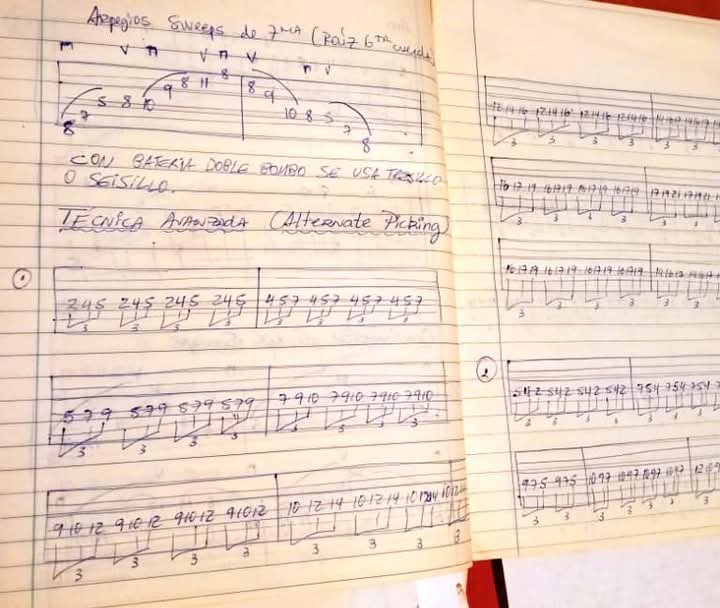 Arpegios Sweeps de 7MA (Raíz 6TA cuerda)
п V п V п V п V
8 7 5 8 10 9 8 11 8 8 9 10 8 5 7 8
CON BATERIA DOBLE BOMBO SE USA TRESILLO
O SEISILLO.
TÉCNICA AVANZADA (Alternate Picking)
1
245 245 245 245 457 457 457 457
3 3 3 3 3 3 3 3
579 579 579 579 7910 7910 7910 7910
3 3 3 3 3 3 3 3
91012 91012 91012 91012 101214 101214 101214 1012
3 3 3 3 3 3 3 3
121416 121416 121416 121416
3 3 3 3 3
161719 161719 161719 161719 171921
3 3 3 3 3
161719 161719 161719 161719
3 3 3 3 3
2
542 542 542 542 754 754 754 7
3 3 3 3 3 3 3
975 975 1097 1097 1097 1097
3 3 3 3 3 3 3